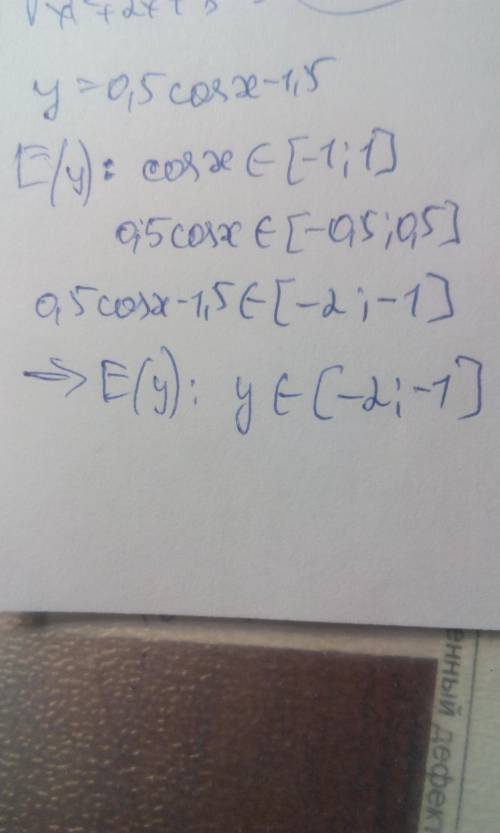 y=0,5cosx-1,5
E(y): cosx∈[-1;1]
0,5cosx∈[-0,5;0,5]
0,5cosx-1,5∈[-2;-1]
⇒ E(y): y∈[-2;-1]
енный дефек